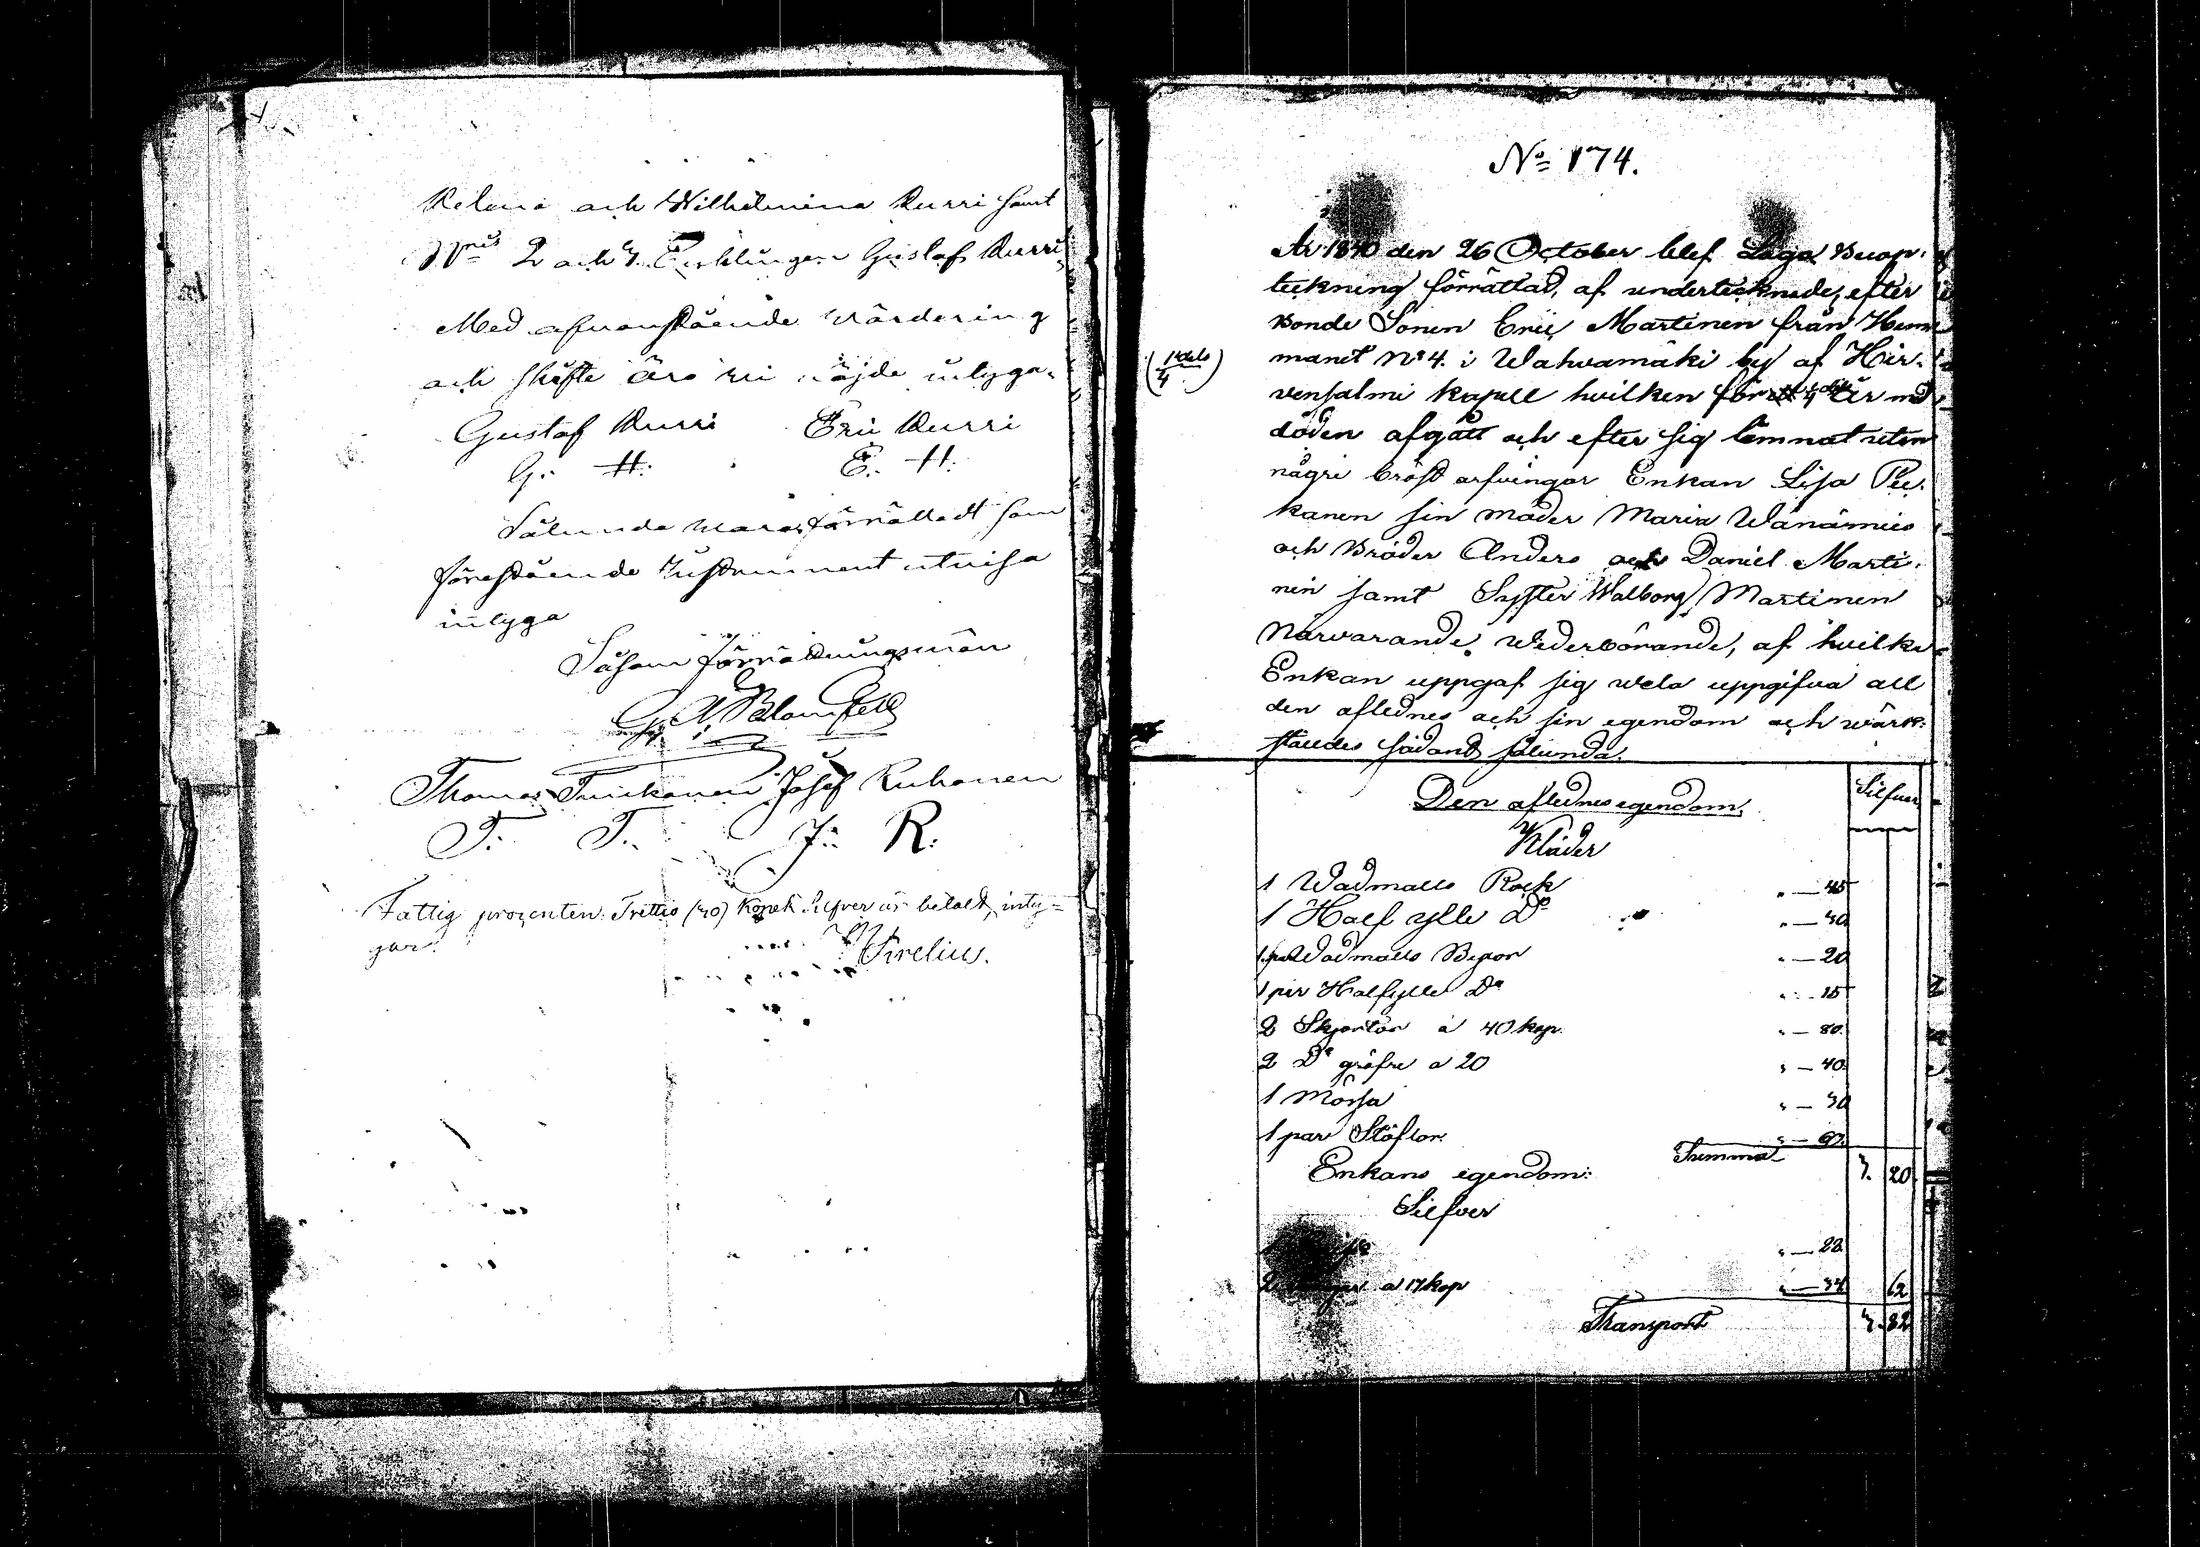 Helena och Wilhelmina Kurri samt
N:ris 2 och 3. Enklingen Gustaf Kurri
Med ofvanstående värdering
och skifte äro vi nöjde intyga.
Gustaf Kurri Eric Kurri
G. H. E. H.
Sålunda vara förrättadt som
förestående Instrument utvisa
intyga
Såsom förrättningsmän
Thomas Turkonen Josef Ruhanen
T. T. J. R.
Fattig prozenten Trettio (30) Kopek Silfver är betalt, inty=
gar.
Sirelius.
No 174.
År 1840 den 26 October blef Laga Boup-
teckning förrättad, af undertecknade, efter
Bonde Sonen Eric Martinen från Hem
manet No 4. i Wahvamäki by af Hir-
vensalmi kapell hvilken för 4 år med
döden afgått och efter sig lemnat utom
någre bröst arfvingar Enkan Lisa Pu-
kanen sin moder Maria Wänämies
och Bröder Anders och Daniel Marti-
nen samt Syster Walborg Martinen
Närvarande Wederbörande, af hvilka
Enkan uppgaf sig wela uppgifva all
den aflednes och sin egendom och wärk-
stäldes sådant sålunda.
Den aflednes egendom. Silfver
Kläder
1 Wadmalls Rock " — 45
1 Half ylle Do " — 30
1 par Wadmalls Byxor " — 20
1 par Halfylle Do " — 15
2 Skjortor a 40 kop. " — 80
2 Do gröfre a 20 " — 40
1 Mössa " — 30
1 par Stöflor " — 60
Summa 3. 20
Enkans egendom:
Silfver
1 " — 28
2 a 17 kop " — 34 62
Transport 3. 82